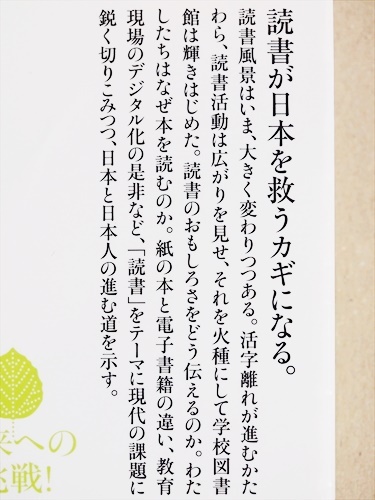 読書が日本を救うカギになる。
読書風景はいま、大きく変わりつつある。活字離れが進むかた
わら、読書活動は広がりを見せ、それを火種にして学校図書
館は輝きはじめた。読書のおもしろさをどう伝えるのか。わた
したちはなぜ本を読むのか。紙の本と電子書籍の違い、教育
現場のデジタル化の是非など、「読書」をテーマに現代の課題に
鋭く切りこみつつ、日本と日本人の進む道を示す。
来への
挑戦!